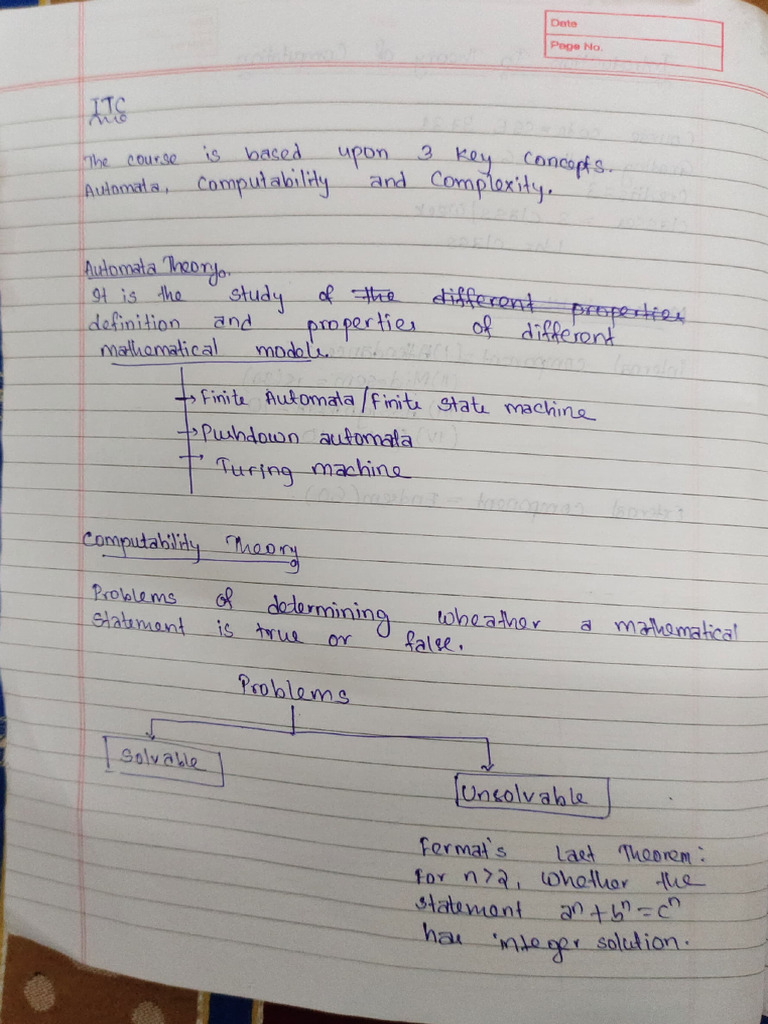 Date
Page No.
ITC
The course is based upon 3 key concepts.
Automata, Computability and Complexity.
Automata Theory.
It is the study of the different properties
definition and properties of different
mathematical models.
→ Finite Automata/Finite state machine
→ Pushdown automata
→ Turing machine
Computability Theory
Problems of determining wheather a mathematical
statement is true or false.
Problems
Solvable
Unsolvable
Fermat's Last Theorem:
For n>2, whether the
statement aⁿ + bⁿ = cⁿ
has integer solution.